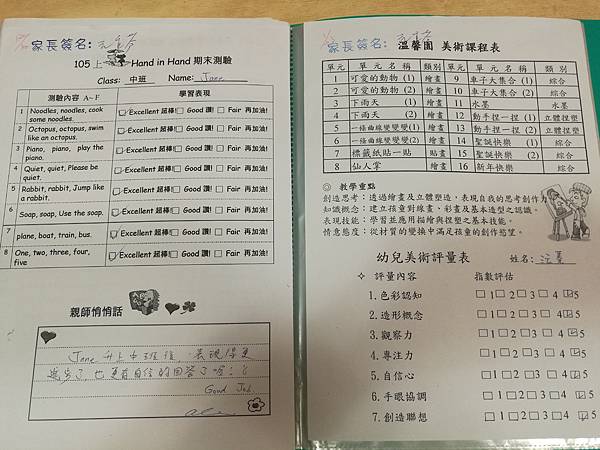 家長簽名:
105 上 Hand in Hand 期末測驗
Class: 中班 Name: Jane
測驗內容 A~F 學習表現
1 Noodles, noodles, cook some noodles. ☑Excellent 超棒!☐ Good 讚!☐ Fair 再加油!
2 Octopus, octopus, swim like an octopus. ☑Excellent 超棒!☐ Good 讚!☐ Fair 再加油!
3 Piano, piano, play the piano. ☑Excellent 超棒!☐ Good 讚!☐ Fair 再加油!
4 Quiet, quiet, Please be quiet. ☑Excellent 超棒!☐ Good 讚!☐ Fair 再加油!
5 Rabbit, rabbit, Jump like a rabbit. ☑Excellent 超棒!☐ Good 讚!☐ Fair 再加油!
6 Soap, soap, Use the soap. ☑Excellent 超棒!☐ Good 讚!☐ Fair 再加油!
7 plane, boat, train, bus. ☑Excellent 超棒!☐ Good 讚!☐ Fair 再加油!
8 One, two, three, four, five ☑Excellent 超棒!☐ Good 讚!☐ Fair 再加油!
親師悄悄話
Jane 升上中班後,表現得更
進步了,也更有自信的回答了喔!
Good Job.
家長簽名:
溫馨園 美術課程表
單元 單元名稱 類別 單元 單元名稱 類別
1 可愛的動物 (1) 繪畫 9 車子大集合 (1) 綜合
2 可愛的動物 (2) 繪畫 10 車子大集合 (2) 綜合
3 下雨天 (1) 繪畫 11 水墨 水墨
4 下雨天 (2) 繪畫 12 動手捏一捏 (1) 立體捏塑
5 一條曲線變變變(1) 繪畫 13 動手捏一捏 (2) 立體捏塑
6 一條曲線變變變(2) 繪畫 14 聖誕快樂 (1) 綜合
7 標籤紙貼一貼 貼畫 15 聖誕快樂 (2) 綜合
8 仙人掌 繪畫 16 新年快樂 綜合
◎ 教學重點
創造思考:透過繪畫及立體塑造,表現自我的思考創作力
知識概念:建立孩童對線畫、彩畫及基本造型之認識。
表現技能:學習並應用描繪與捏塑之基本技能。
情意態度:從材質的變換中滿足孩童的創作慾望。
幼兒美術評量表 姓名:
✧ 評量內容 指數評估
1.色彩認知 ☐1☐2☐3☐4☑5
2.造形概念 ☐1☐2☐3☐4☑5
3.觀察力 ☐1☐2☐3☐4☑5
4.專注力 ☐1☐2☐3☐4☑5
5.自信心 ☐1☐2☐3☐4☑5
6.手眼協調 ☐1☐2☐3☐4☑5
7.創造聯想 ☐1☐2☐3☐4☑5